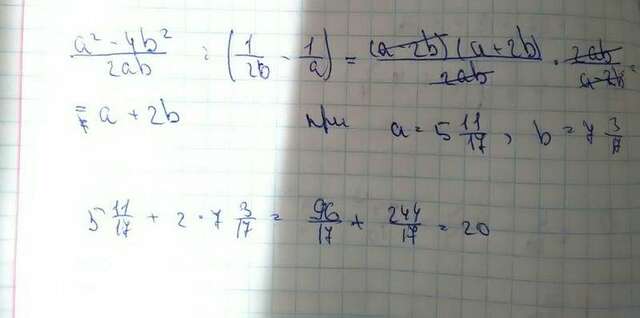 (a² - 4b²)/2ab : (1/2b - 1/a) = (a-2b)(a+2b)/2ab · 2ab/a-2b =
= a + 2b при a = 5 11/17, b = 7 3/17
5 11/17 + 2 · 7 3/17 = 96/17 + 244/17 = 20